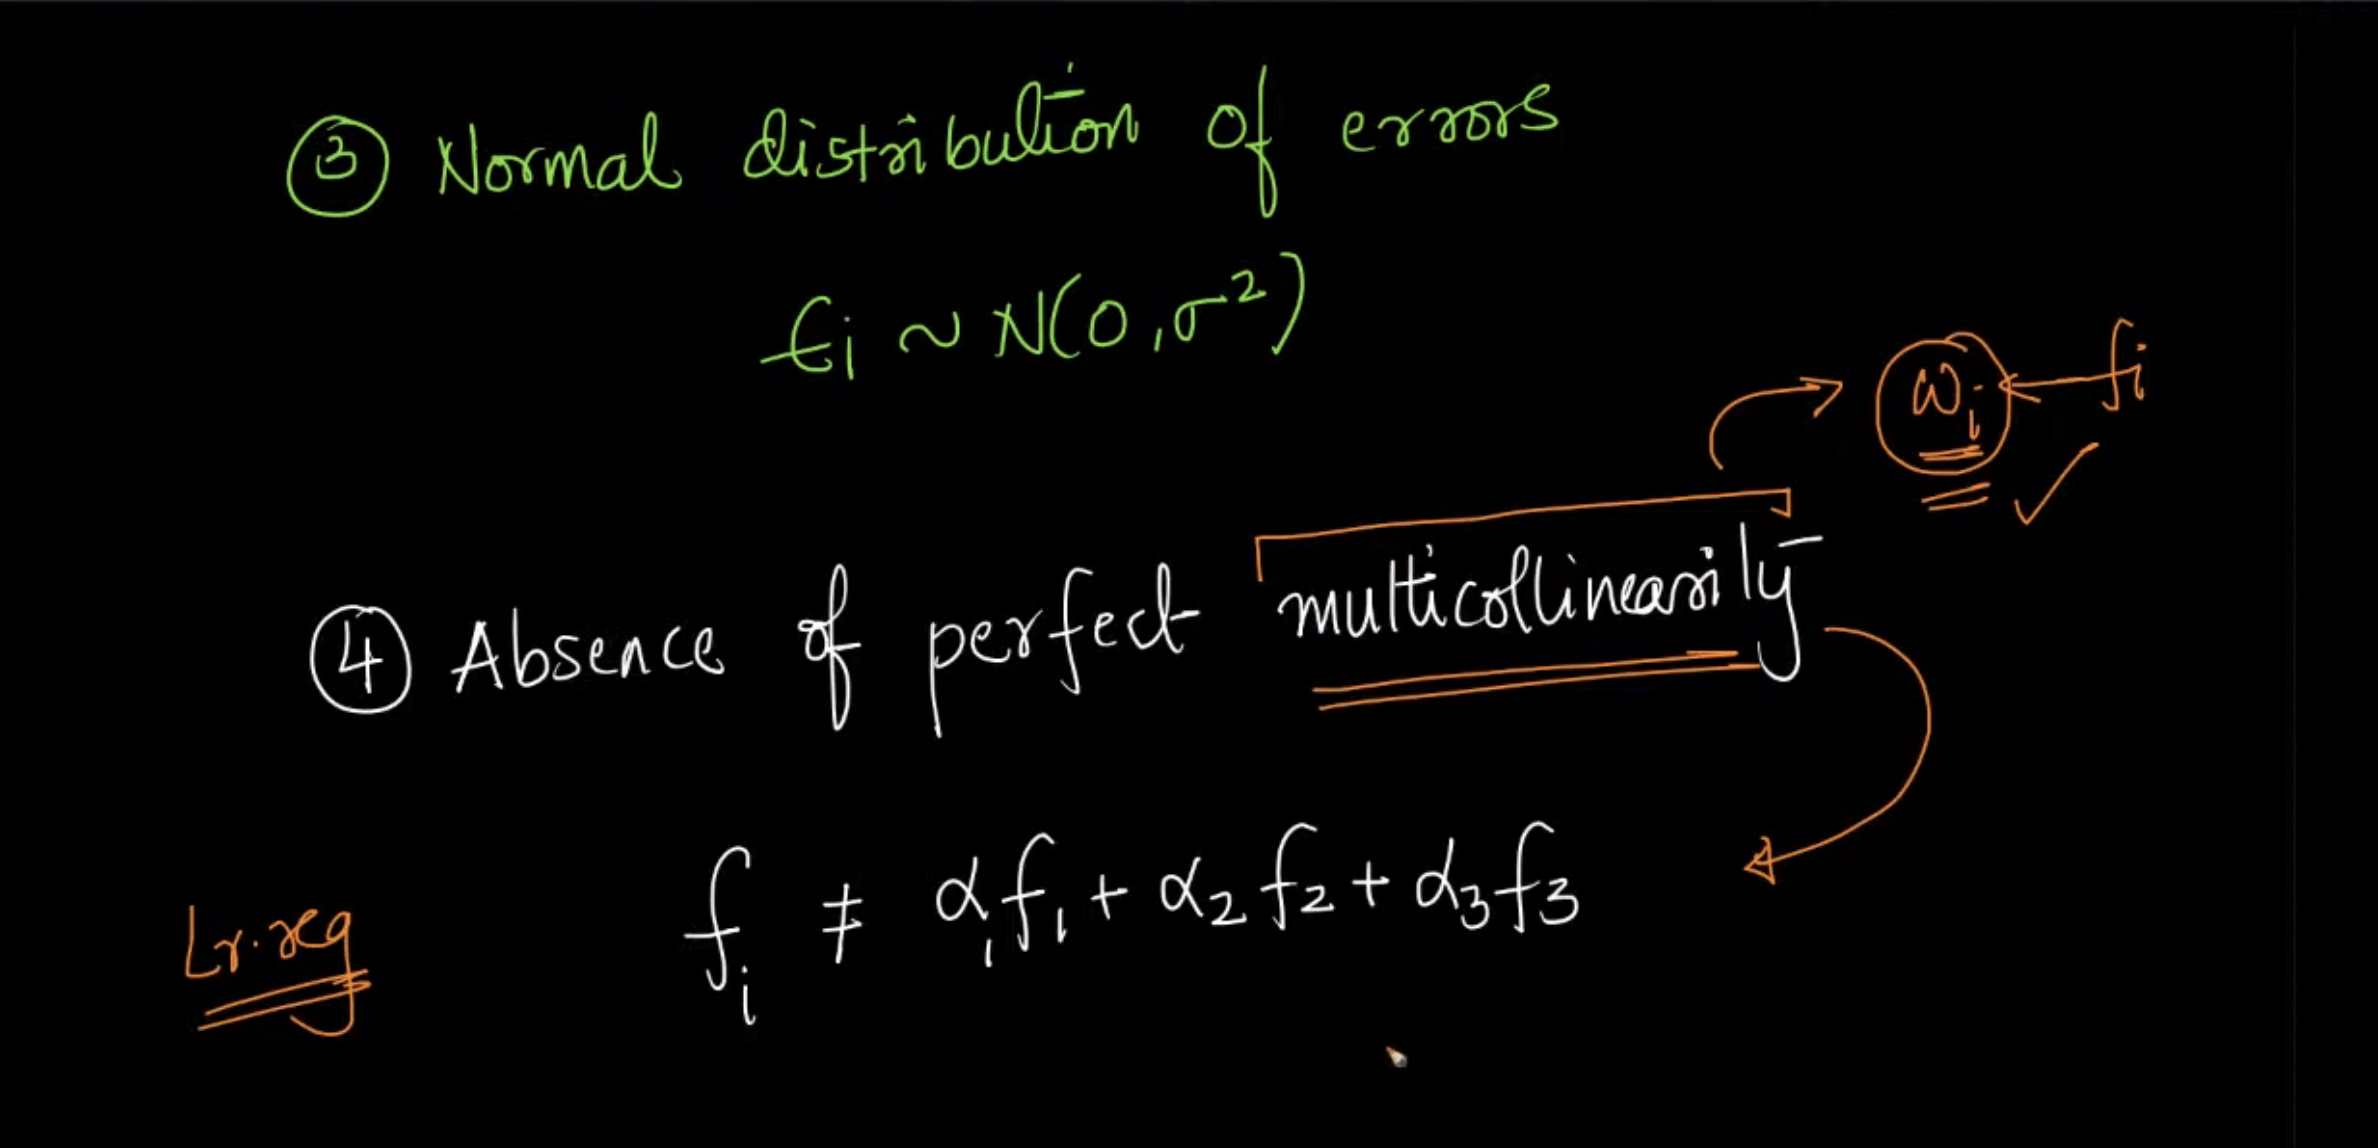 ③ Normal distribution of errors
εi ~ N(0, σ²)
wi ← fi
④ Absence of perfect multicollinearity
fi ≠ α₁f₁ + α₂f₂ + α₃f₃
Lr. reg